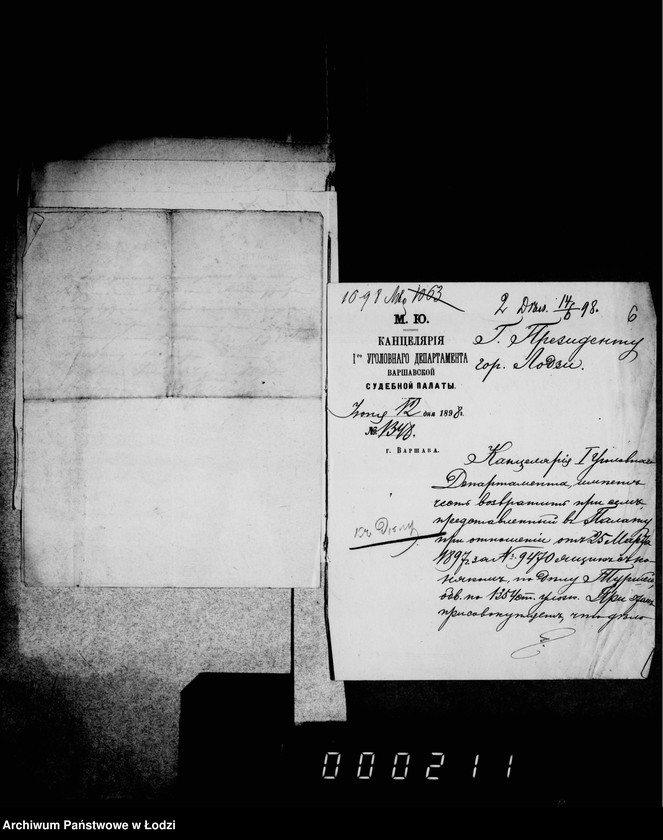 1098 1063
2 Дѣл. 14/6 98.
6
М. Ю.
КАНЦЕЛЯРІЯ
Iго УГОЛОВНАГО ДЕПАРТАМЕНТА
ВАРШАВСКОЙ
СУДЕБНОЙ ПАЛАТЫ.
Іюня 12 дня 1898г.
№ 1348.
г. ВАРШАВА.
Г. Президенту
гор. Лодзи.
къ Дѣлу
Канцелярія I Уголовнаго
Департамента, имѣетъ
честь возвратить при семъ
представленный въ Палату
при отношеніи отъ 25 Марта
1897 за № 9470 ящикъ съ ко-
ньякомъ, по дѣлу
обв. по 1354 ст. улож. При этомъ
присовокупляетъ, что дѣло
000211
Archiwum Państwowe w Łodzi